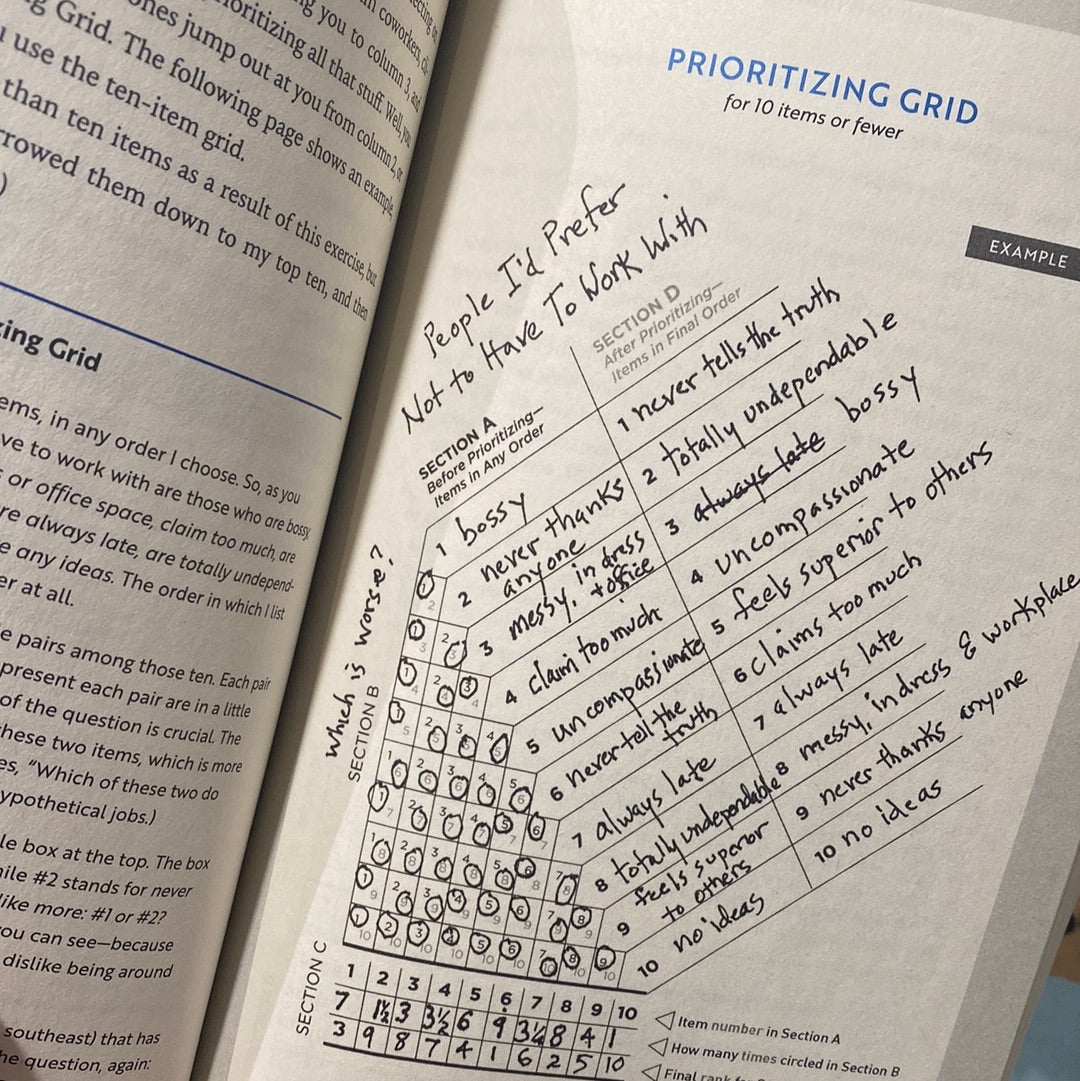 ng you to column 3, and
prioritizing all that stuff. Well, you
ones jump out at you from column 2, or
g Grid. The following page shows an example,
use the ten-item grid.
than ten items as a result of this exercise, but
rrowed them down to my top ten, and then
)
zing Grid
ems, in any order I choose. So, as you
ve to work with are those who are bossy,
s or office space, claim too much, are
re always late, are totally undepend-
e any ideas. The order in which I list
er at all.
e pairs among those ten. Each pair
present each pair are in a little
of the question is crucial. The
hese two items, which is more
es, "Which of these two do
ypothetical jobs.)
le box at the top. The box
hile #2 stands for never
like more: #1 or #2?
ou can see—because
dislike being around
southeast) that has
he question, again:
PRIORITIZING GRID
for 10 items or fewer
EXAMPLE
People I'd Prefer
Not to Have To Work With
SECTION A
Before Prioritizing—
Items in Any Order
1 bossy
2 never thanks
anyone
3 messy, in dress
+ office
4 claim too much
5 uncompassionate
6 never tell the
truth
7 always late
8 totally undependable
9 feels superior
to others
10 no ideas
SECTION D
After Prioritizing—
Items in Final Order
1 never tells the truth
2 totally undependable
3 always late bossy
4 uncompassionate
5 feels superior to others
6 claims too much
7 always late
8 messy, in dress & workplace
9 never thanks anyone
10 no ideas
Which is worse?
SECTION B
1 2
1 3 2 3
1 4 2 4 3 4
1 5 2 5 3 5 4 5
1 6 2 6 3 6 4 6 5 6
1 7 2 7 3 7 4 7 5 7 6 7
1 8 2 8 3 8 4 8 5 8 6 8 7 8
1 9 2 9 3 9 4 9 5 9 6 9 7 9 8 9
1 10 2 10 3 10 4 10 5 10 6 10 7 10 8 10 9 10
SECTION C
1 2 3 4 5 6 7 8 9 10
7 1½ 3 3½ 6 9 3½ 8 4 1
3 9 8 7 4 1 6 2 5 10
Item number in Section A
How many times circled in Section B
Final rank